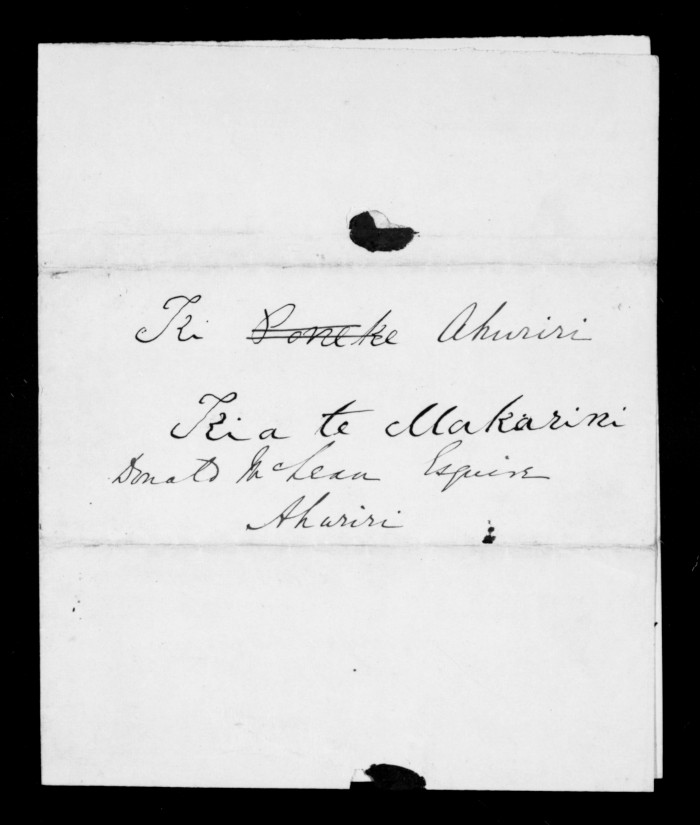 Ki Poneke Ahuriri
Kia te Makarini
Donald McLean Esquire
Ahuriri